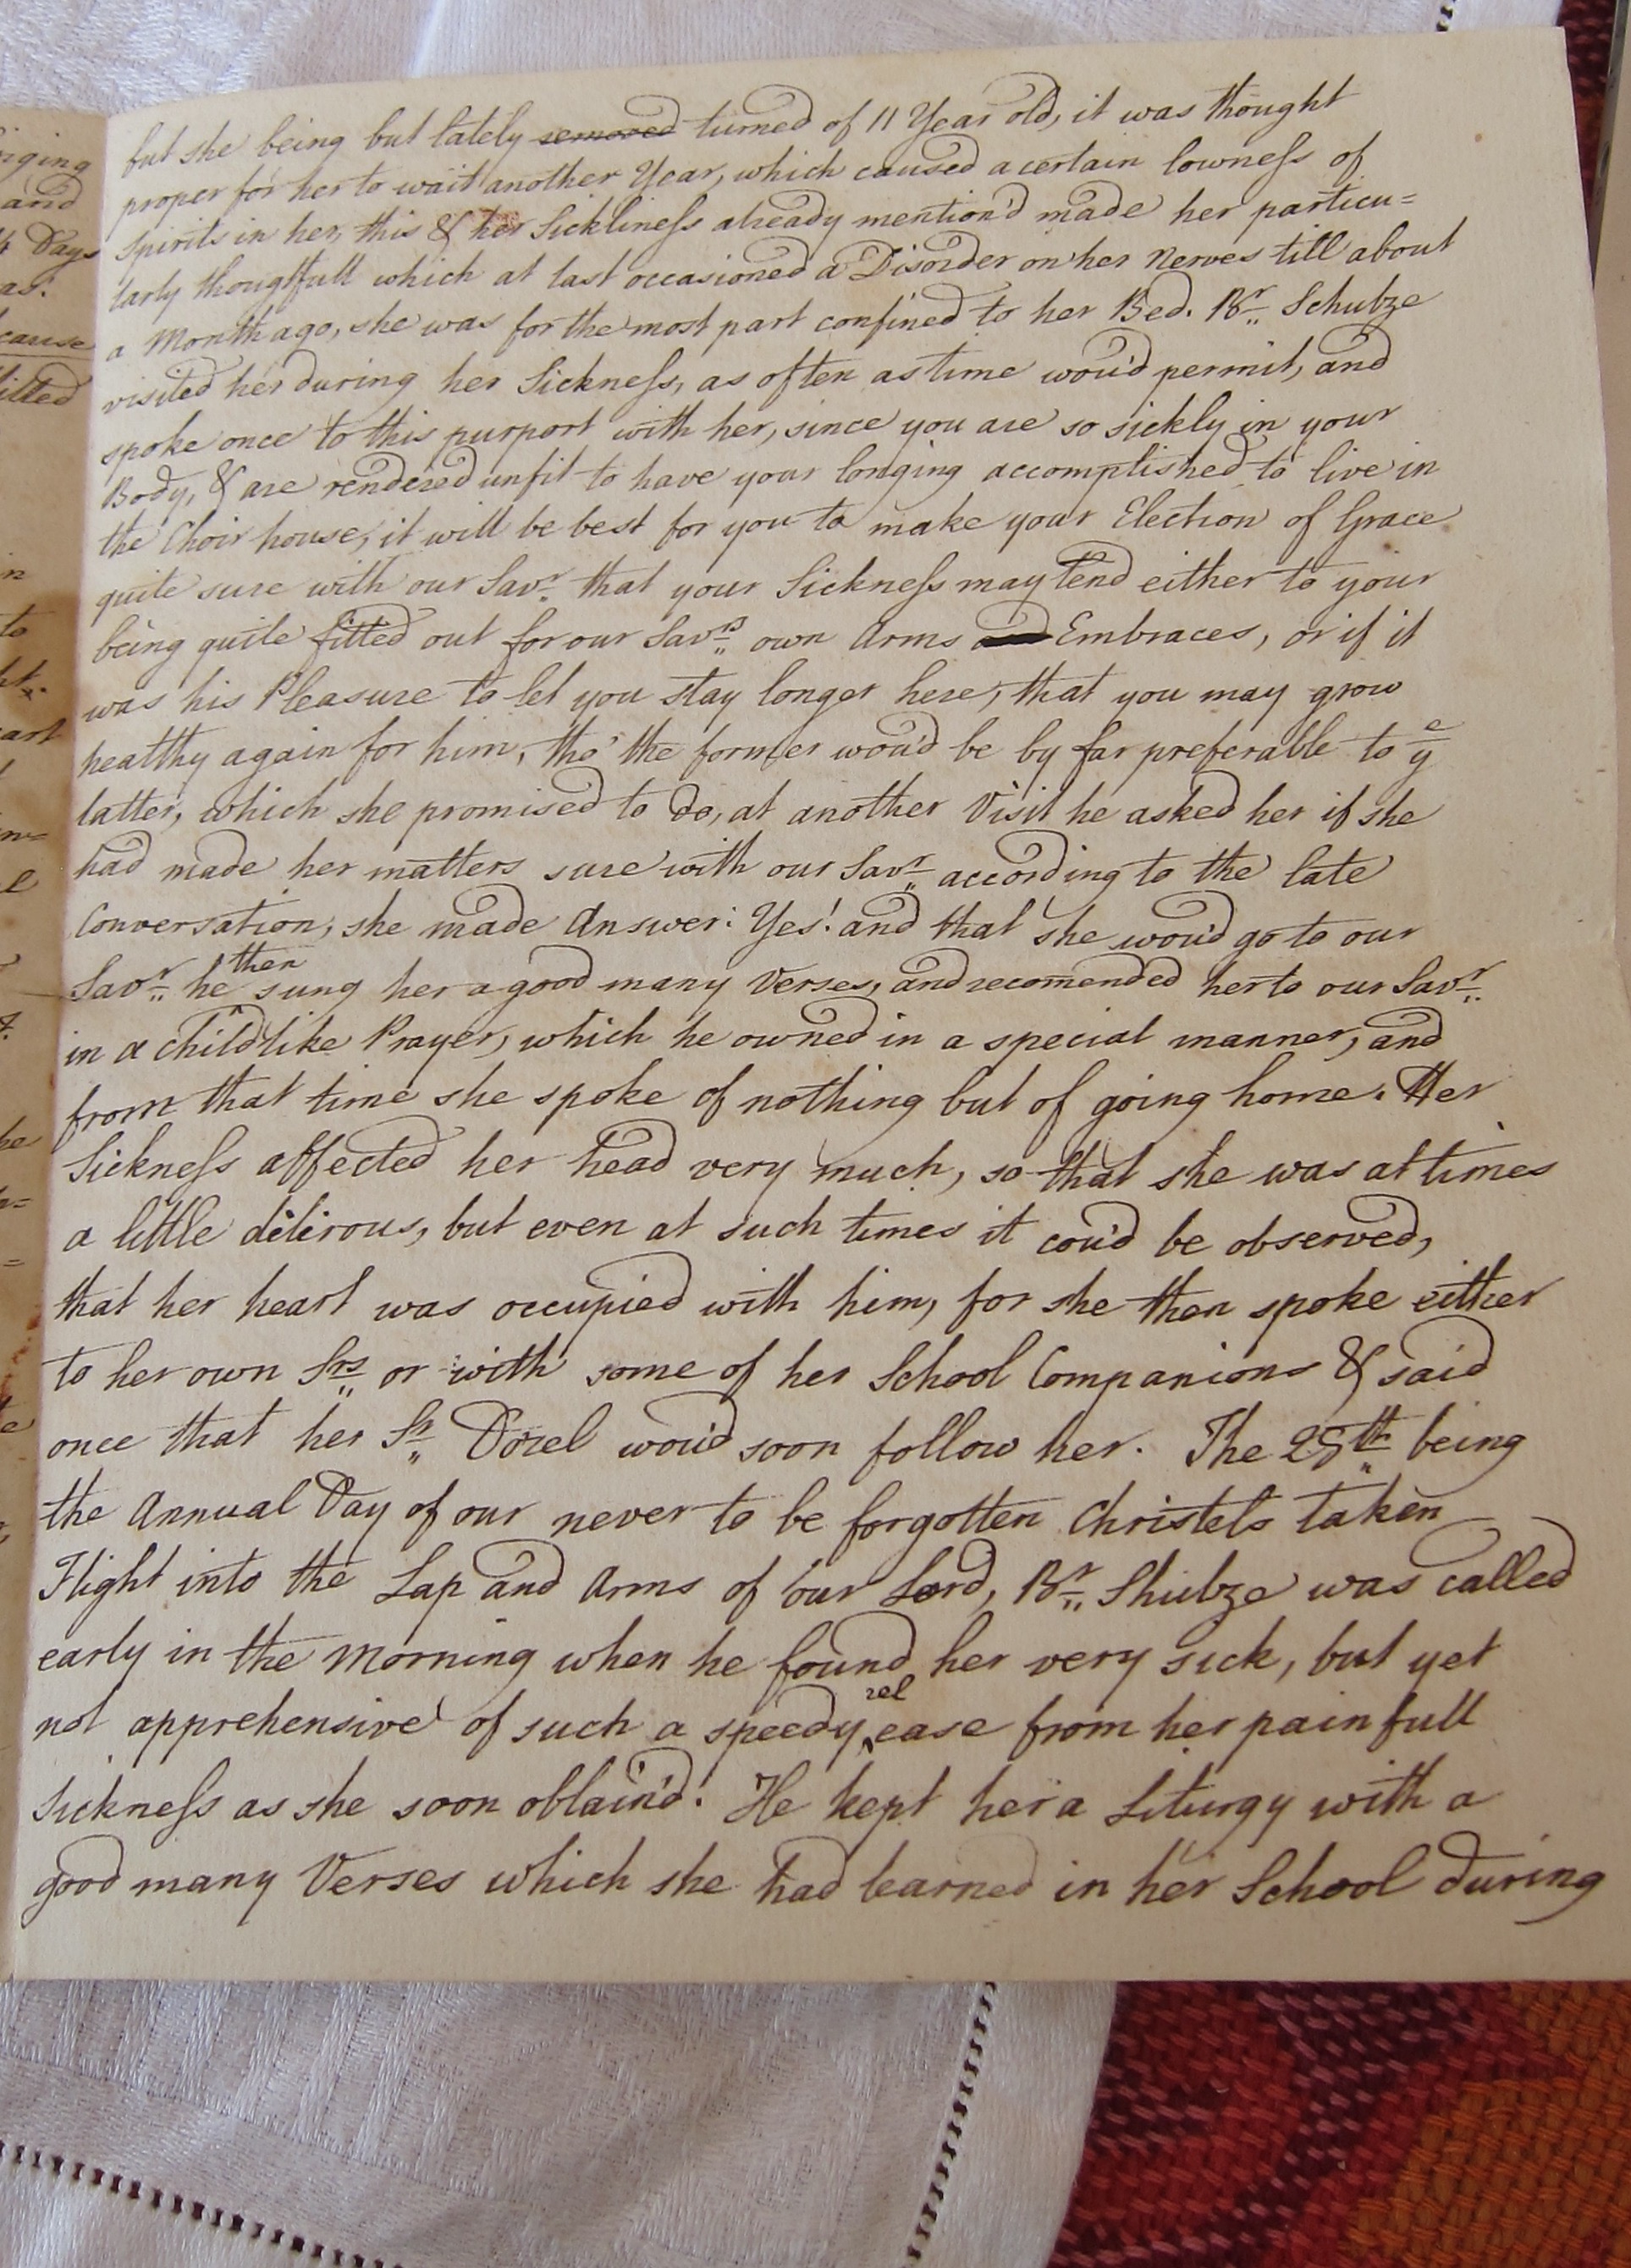 but she being but lately removed turned of 11 Year old, it was thought
proper for her to wait another Year, which caused a certain lowness of
Spirits in her, this & her Sickliness already mention'd made her particu=
larly thougtfull which at last occasioned a Disorder on her Nerves till about
a Month ago, she was for the most part confined to her Bed. Br. Schulze
visited her during her Sickness, as often as time wou'd permit, and
spoke once to this purport with her, since you are so sickly in your
Body, & are rendered unfit to have your longing accomplished to live in
the Choir house, it will be best for you to make your Election of Grace
quite sure with our Savr. that your Sickness may tend either to your
being quite fitted out for our Savrs. own Arms and Embraces, or if it
was his Pleasure to let you stay longer here, that you may grow
healthy again for him, tho' the former wou'd be by far preferable to ye
latter, which she promised to do, at another Visit he asked her if she
had made her matters sure with our Savr. according to the late
Conversation, she made Answer: Yes! and that she wou'd go to our
Savr. he then sung her a good many Verses, and recomended her to our Savr.
in a childlike Prayer, which he owned in a special manner, and
from that time she spoke of nothing but of going home. Her
Sickness affected her head very much, so that she was at times
a little delirous, but even at such times it cou'd be observed,
that her heart was occupied with him, for she then spoke either
to her own Srs. or with some of her School Companions & said
once that her Sr. Dorel wou'd soon follow her. The 25th. being
the Annual Day of our never to be forgotten Christels taken
Flight into the Lap and Arms of our Lord, Br. Shulze was called
early in the Morning when he found her very sick, but yet
not apprehensive of such a speedy release from her painfull
Sickness as she soon obtain'd! He kept her a Liturgy with a
good many Verses which she had learned in her School during